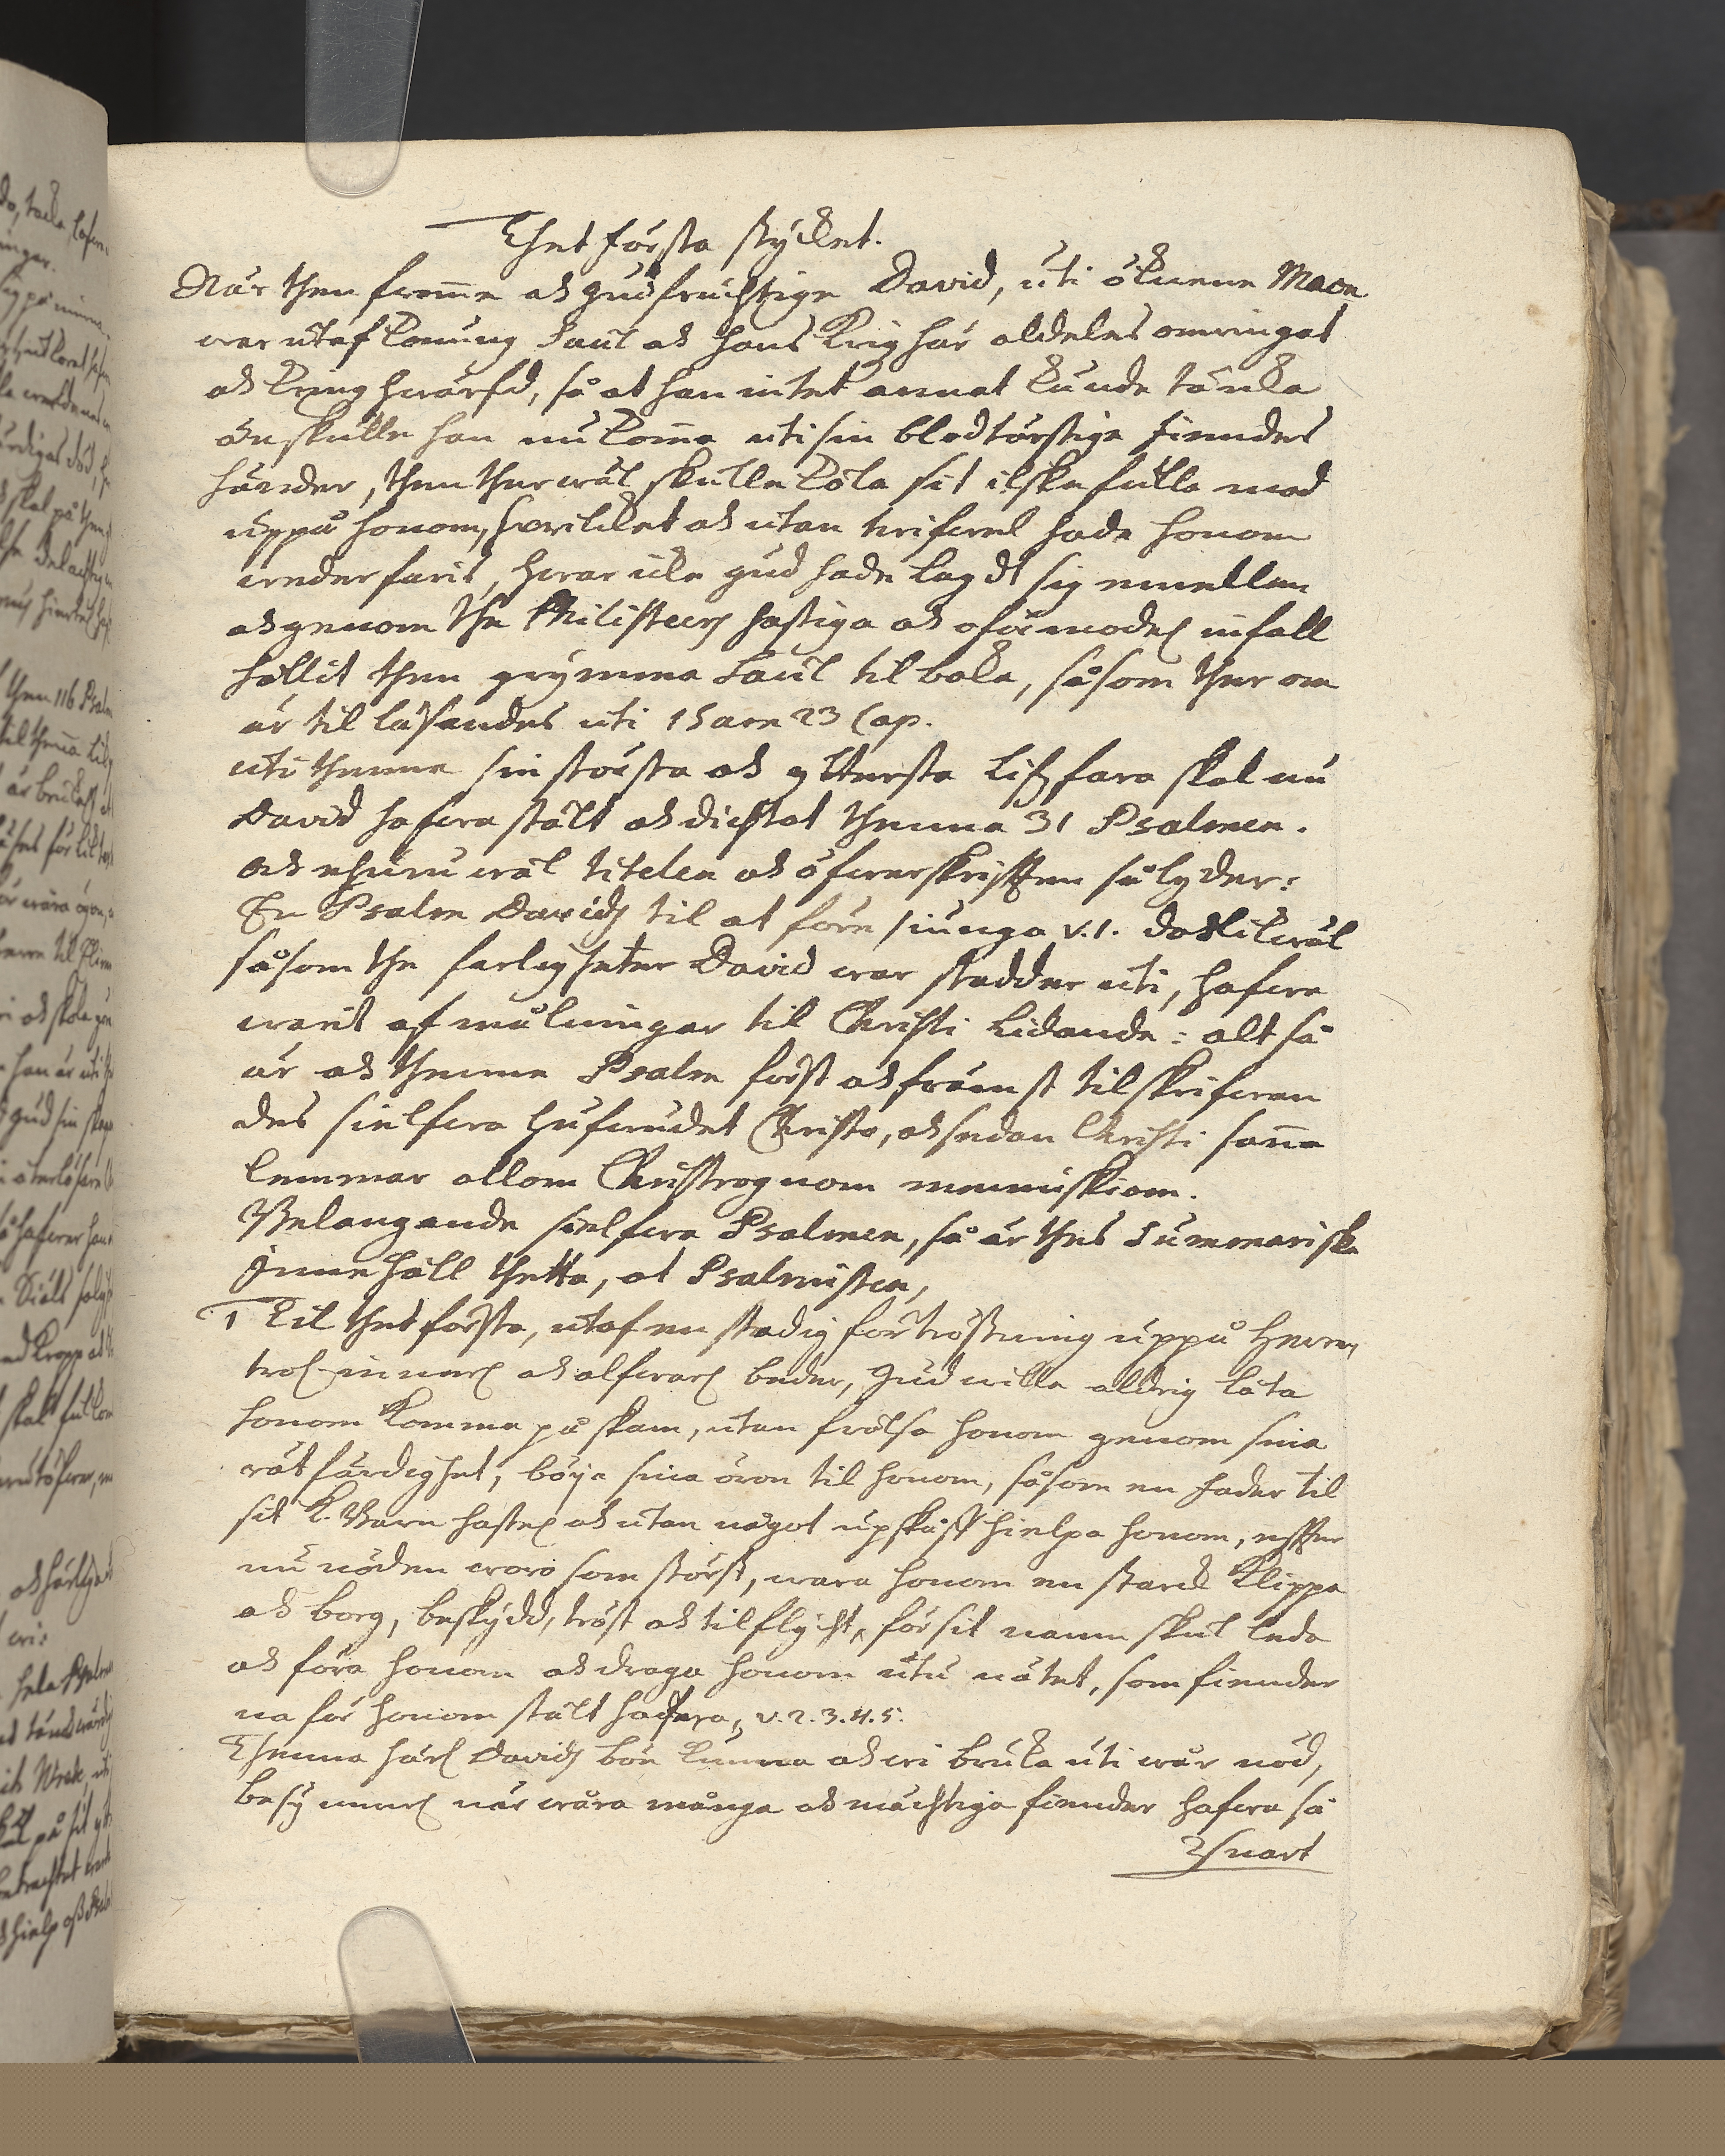 Thet första stycket.
När then from̄e ok gudfruchtige David, uti öknene Maon
war utaf konung Saul ok hans krigshär aldeles omringat
ok kringhwärfd, så at han intet annat kunde tänka
än skulle han nu kom̄a uti sin blodtörstige fiendes
händer, then ther wäl skulle kölat sit ilskefulla mod
uppå honom, hwilcket ok utan twifwel hade honom
wederfarit, hwar icke gud hade lagdt sig emellan
ok genom the Philisteers hastiga ok oförmodel. infall
hållit then grymma Saul tilbaka, såsom ther om
är til läsandes uti 1 Sam 23 Cap.
uti thenne sin största ok yttersta lifzfara skal nu
David hafwa stält ok dichtat thenna 31 Psalmen.
ok ehuru wäl titelen ok öfwerskriften så lyder:
En Psalm Davids til at före siunga v. 1. dok likwäl
såsom the farligheter David war stadder uti, hafwa
warit afmålningar til Christi lidande: altså
är ok thenne Psalm först ok främst tilskrifwan
des sielfwa hufwudet Christo, ok sedan Christi san̄e
lemmar allom Christrognom menniskiom.
Belangande sielfwa Psalmen, så är thes summariske
Innehåll thetta, at Psalmisten,
1 Til thet första, utaf en stadig förtröstning uppå Herren,
trol. innerl. ok alfwarl. beder, Gud wille aldrig låta
honom komma på skam, utan frälsa honom genom sina
rätfärdighet, böija sina öron til honom, såsom en fader til
sit k. Barn hastel. ok utan något upskåf hielpa honom, efter
nu nöden woro som störst, wara honom en starck klippa
ok borg, beskydd, tröst ok tilflycht, för sit namn skul leda
ok föra honom ok draga honom utu nätet, som fiender
na för honom stält hafwa, v. 2. 3. 4. 5.
Thenna härl. Davids bön kunna ok wi bruka uti wår nöd,
besynnerl. när wåra många ok mächtiga fiender hafwa så
snart